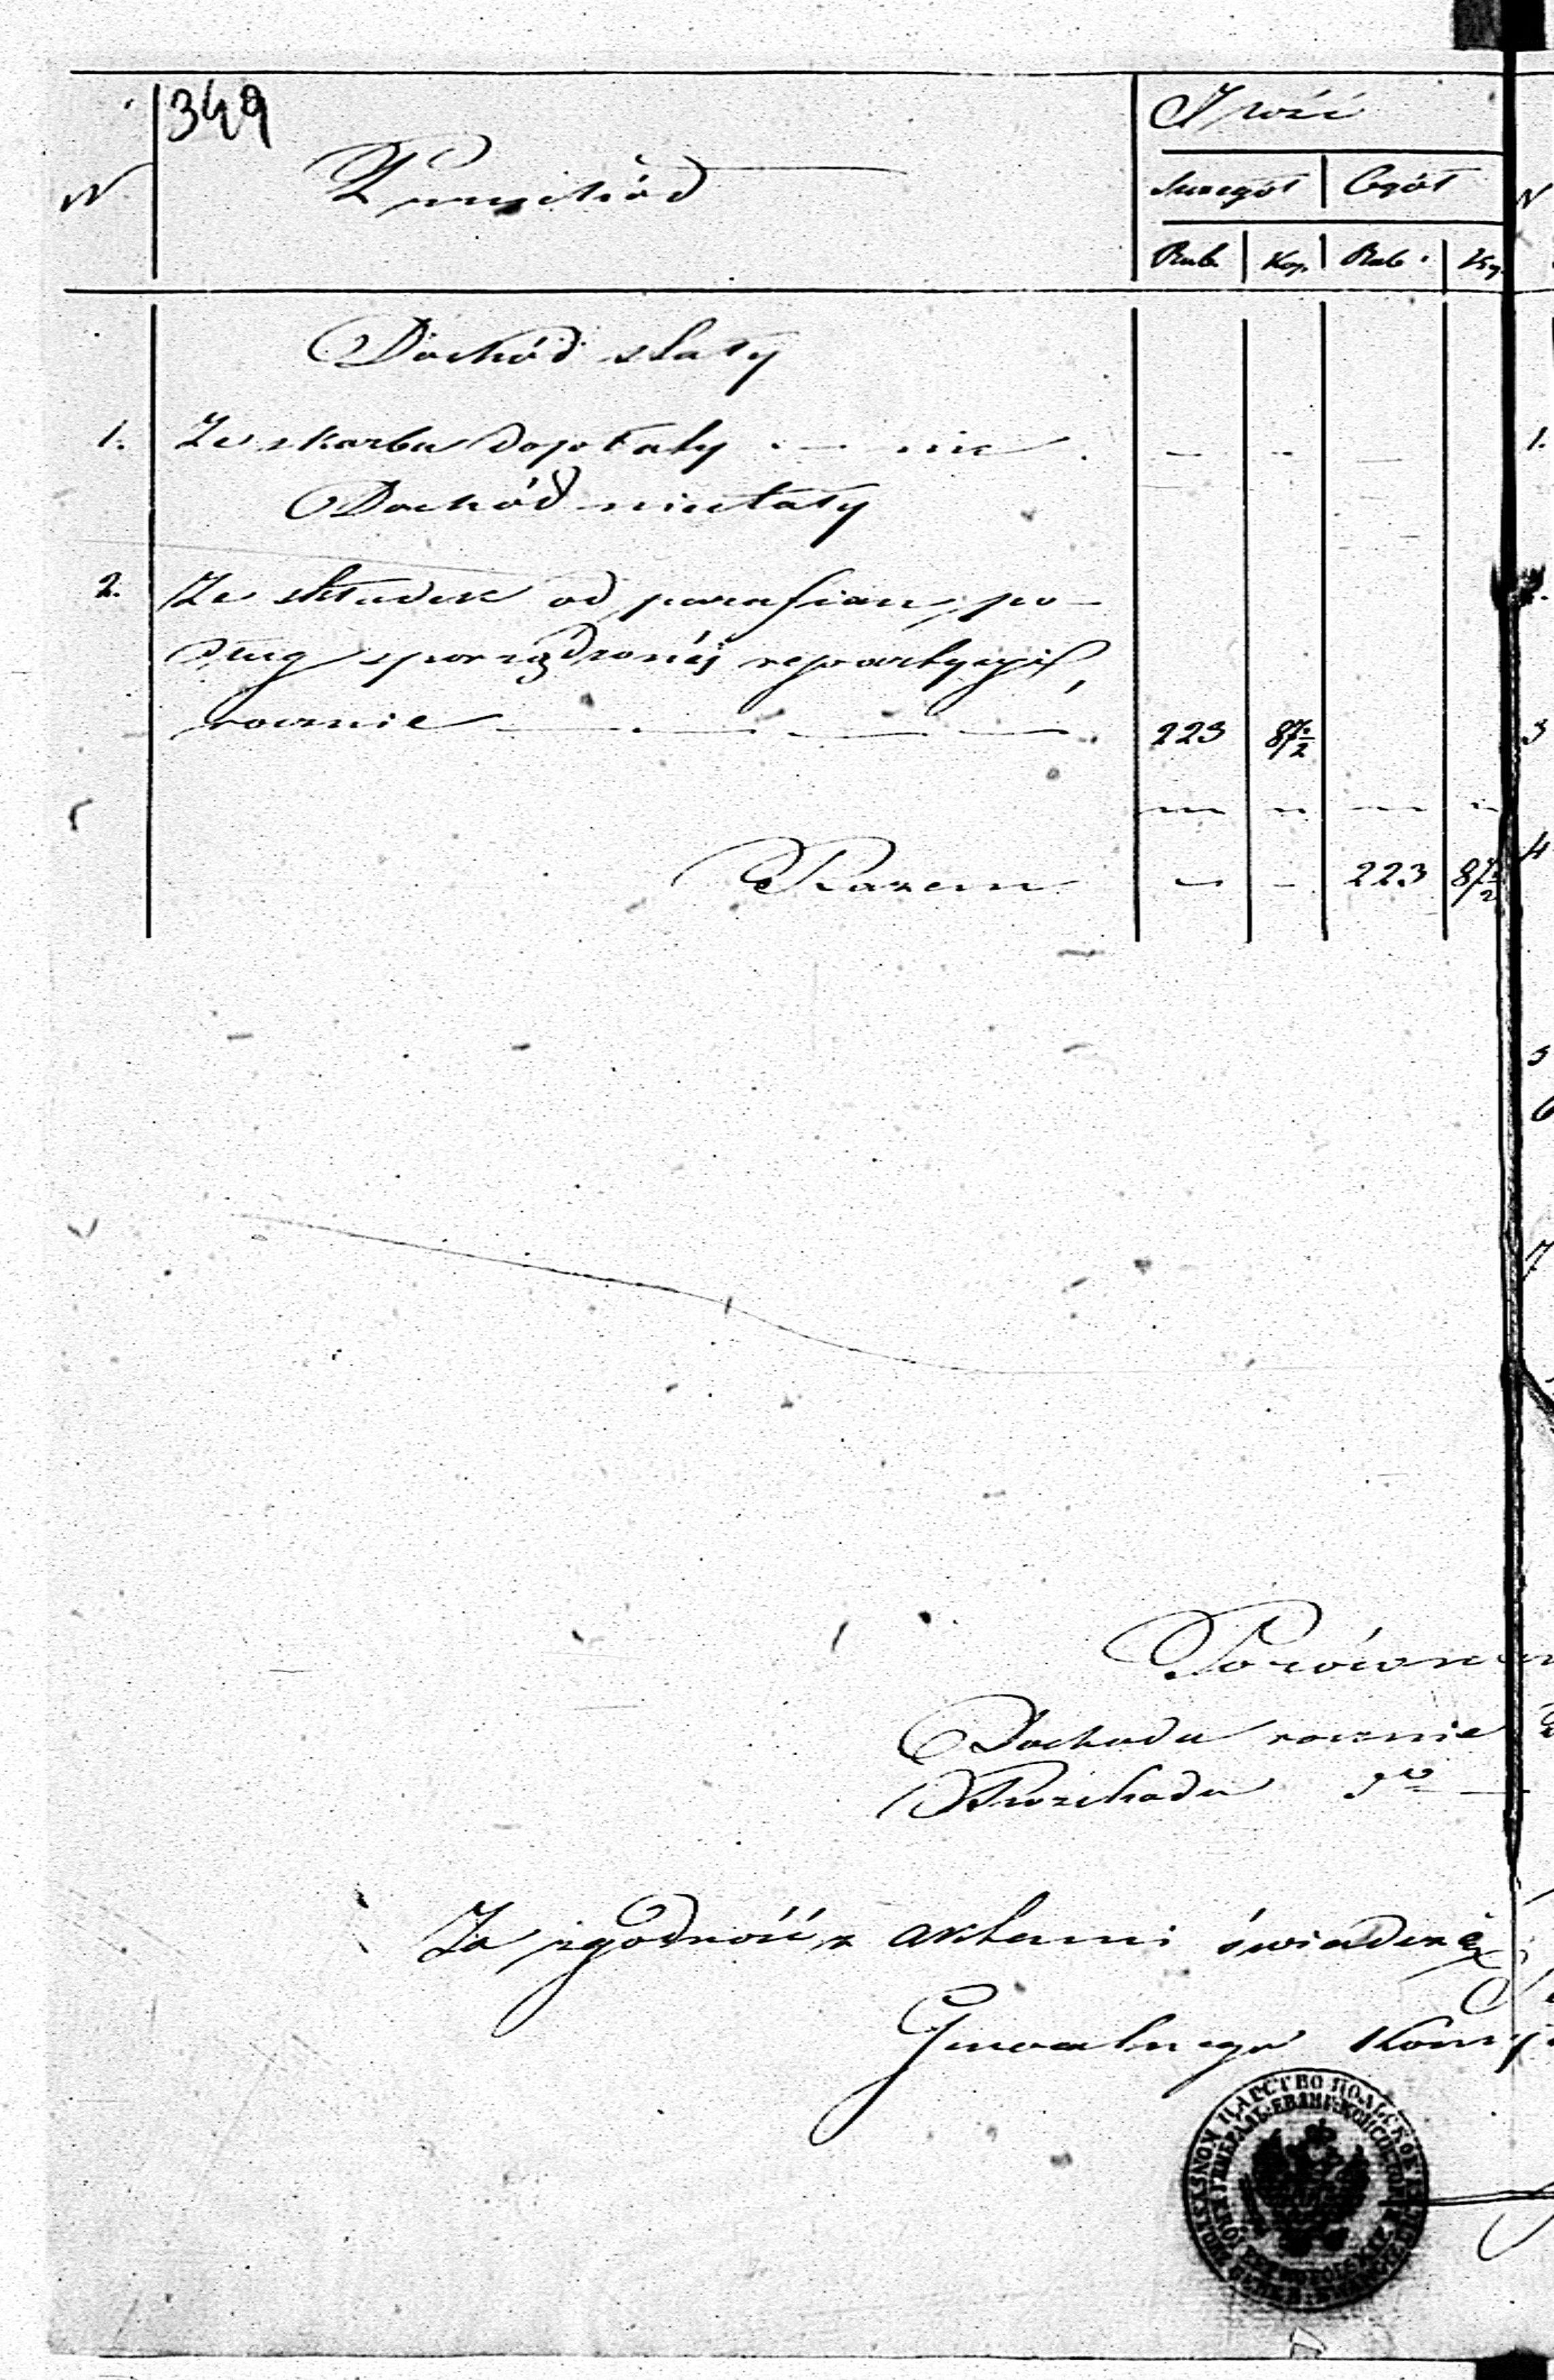 349
N Przychód
Ilość
Szczegół Ogół
Rub. Kop. Rub. Kop.
Dochód stały
1. Ze skarbu dopłaty — nic
Dochód niestały
2. Ze składek od parafian, po-
dług sporządzonéj repartycyi,
rocznie 223 87½
Razem 223 87½
Dochodu rocznie
Rozchodu do
Za zgodność z aktami świadczy
Generalnego
ЦАРСТВО ПОЛЬСКОЕ